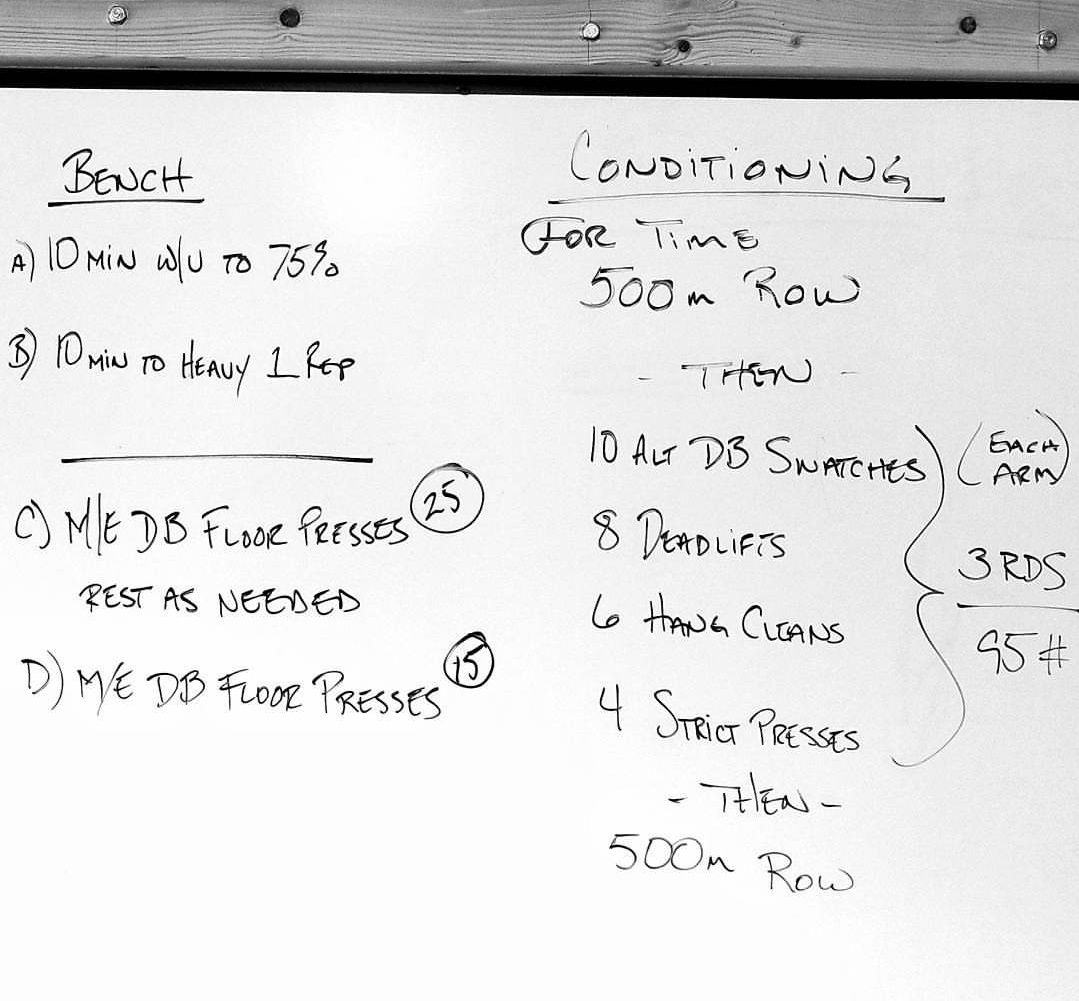 BENCH
A) 10 MIN W/U TO 75%
B) 10 MIN TO HEAVY 1 REP
C) M/E DB FLOOR PRESSES 25
REST AS NEEDED
D) M/E DB FLOOR PRESSES 15
CONDITIONING
FOR TIME
500m ROW
- THEN -
10 ALT DB SNATCHES (EACH ARM)
8 DEADLIFTS
6 HANG CLEANS
4 STRICT PRESSES
3 RDS
95#
- THEN -
500m ROW